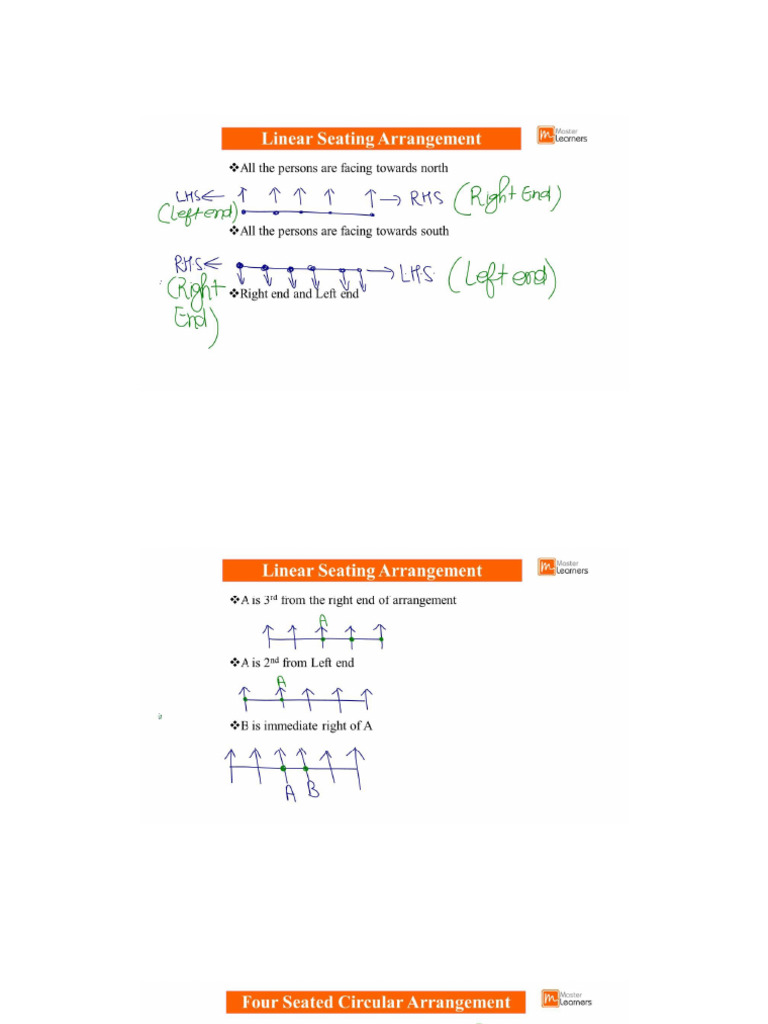 Linear Seating Arrangement
Master
Learners
❖All the persons are facing towards north
LHS
RHS (Right End)
(Left end)
❖All the persons are facing towards south
RHS
LHS (Left end)
(Right
End)
❖Right end and Left end
Linear Seating Arrangement
Master
Learners
❖A is 3rd from the right end of arrangement
A
❖A is 2nd from Left end
A
❖B is immediate right of A
A B
Four Seated Circular Arrangement
Master
Learners